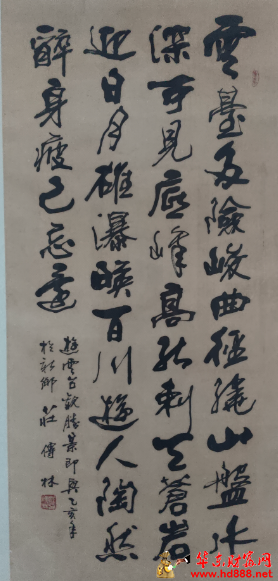 雲臺多險峻曲徑繞山盤水
深可見底峰高能刺天蒼岩
迎日月雄瀑映百川遊人陶然
醉身疲已忘還
遊雲台觀勝景即興乙亥年
於新鄉 莊傳林
华东财富网
www.hd888.net